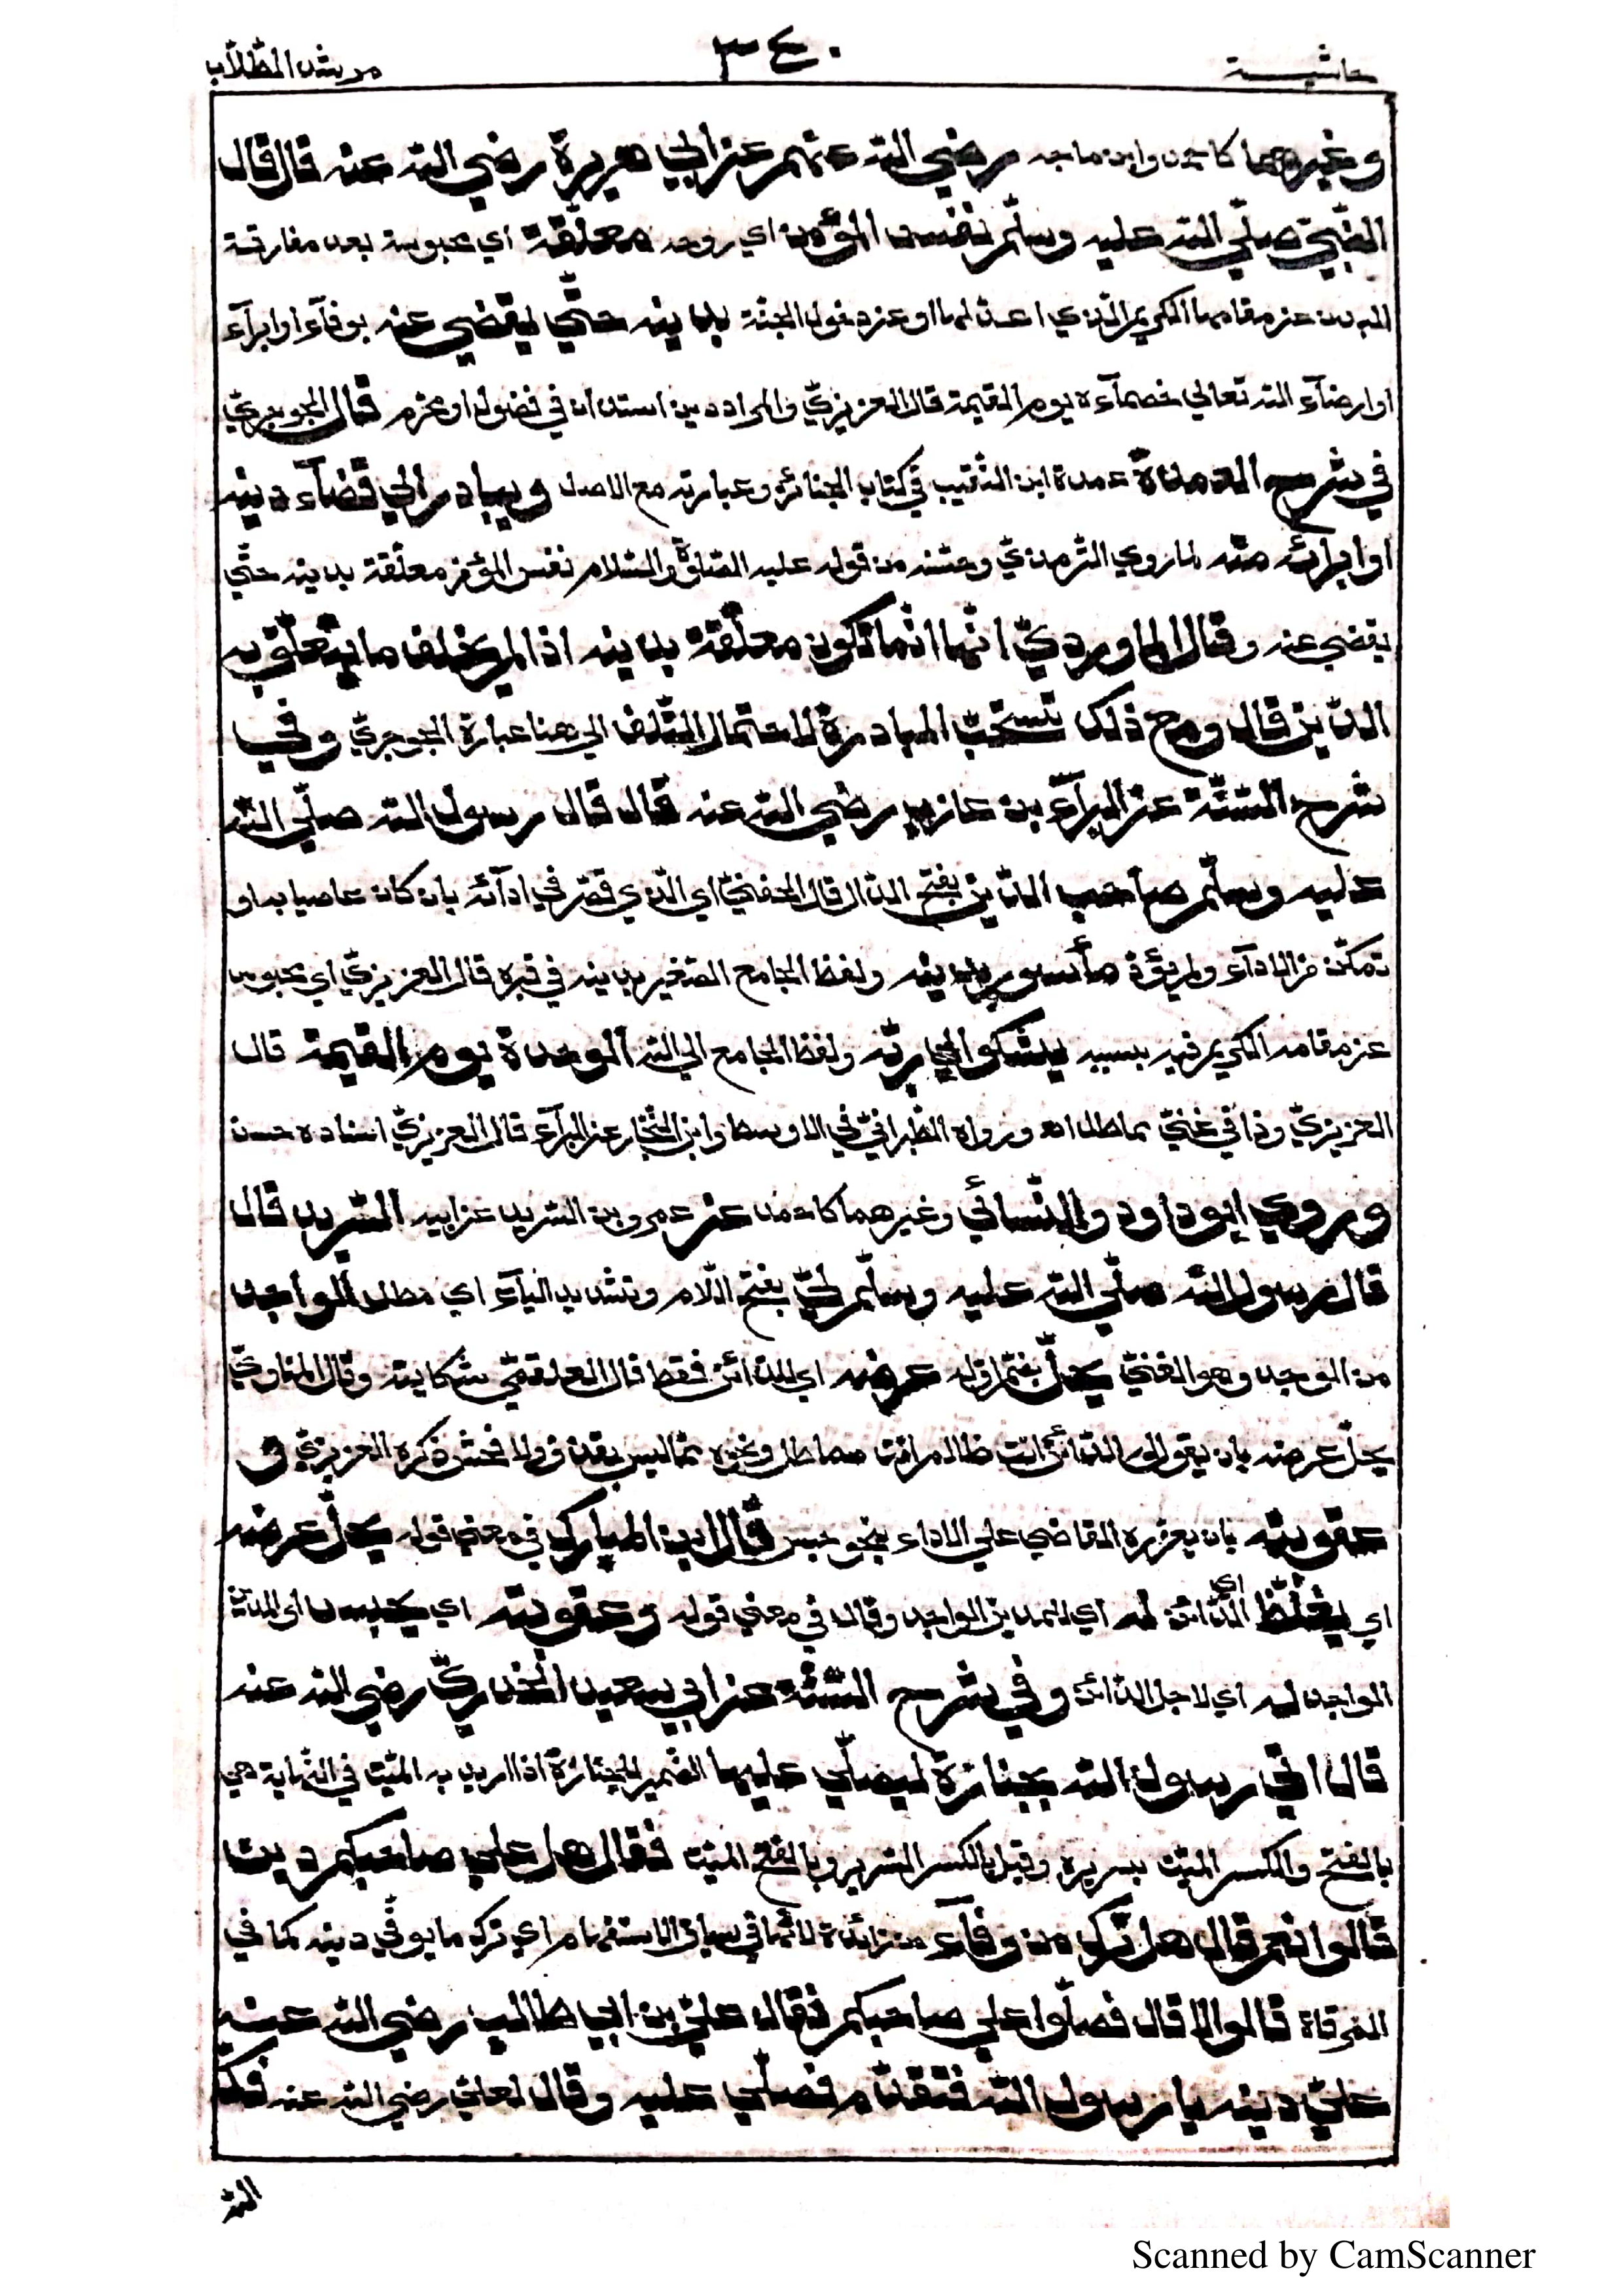 حاشية
٣٤٠
مرشد الطّلّاب
وغيرهما كاحمد وابن ماجه رضي الله عنهم عن ابي هريرة رضي الله عنه قال قال
النّبيّ صلّي الله عليه وسلّم نفس المؤمن اي روحه معلّقة اي محبوسة بعد مفارقة
البدن عن مقامها الكريم الّذي اعدّ لها او عن دخول الجنّة بدينه حتّي يقضي عنه بوفآء او ابرآء
او ارضآء الله تعالي خصمآءه يوم القيمة قال العزيزيّ والمراد دين استدان في فضول او محرم قال الجوجريّ
في شرح العمدة عمدة ابن النّقيب في كتاب الجنائز وعبارته مع الاصل ويبادر الي قضآء دينه
او ابرائه منه لما روي التّرمذيّ وحسّنه من قوله عليه الصّلوة والسّلام نفس المؤمن معلّقة بدينه حتّي
يقضي عنه وقال الماورديّ انّها انّما تكون معلّقة بدينه اذا لم يخلف ما يتعلّق به
الدّين قال ومع ذلك تستحبّ المبادرة لاحتمال التّلف الي هنا عبارة الجوجريّ وفي
شرح السّنّة عن البرآء بن عازب رضي الله عنه قال قال رسول الله صلّي الله
عليه وسلّم صاحب الدّين بفتح الدّال قال الحفنيّ اي الّذي قصّر في ادآئه بان كان عاصيا به او
تمكّن من الادآء ولم يؤدّ مأسور بدينه ولفظ الجامع الصّغير بدينه في قبره قال العزيزيّ اي محبوس
عن مقامه الكريم فيه بسببه يشكوا الي ربّه ولفظ الجامع الي الله الوحدة يوم القيمة قال
العزيزيّ وذا في غنيّ مماطل اه ورواه الطّبرانيّ في الاوسط وابن النّجّار عن البرآء قال العزيزيّ اسناده حسن
وروي ابو داود والنّسائي وغيرهما كاحمد عن عمرو بن الشّريد عن ابيه الشّريد قال
قال رسول الله صلّي الله عليه وسلّم ليّ بفتح اللّام وتشديد اليآء اي مطل الواجد
من الوجد وهو الغنيّ يحلّ بضمّ اوّله عرضه اي للدّائن فقط قال العلقميّ شكايته وقال المناويّ
يحلّ عرضه بان يقول له الدّائن انت ظالم انت مماطل ونحوه ممّا ليس بقذف ولا فحش ذكره العزيزيّ و
عقوبته بان يعزره القاضي علي الاداء بنحو حبس قال ابن المبارك في معني قوله يحلّ عرضه
اي يغلّظ اي الدّائن له اي للمدين الواجد وقال في معني قوله وعقوبته اي يحبس اي المدين
الواجد له اي لاجل الدّائن وفي شرح السّنّة عن ابي سعيد الخدريّ رضي الله عنه
قال اتي رسول الله بجنازة ليصلّي عليها الضّمير للجنازة اذا اريد به الميّت في النّهاية هي
بالفتح والكسر الميّت بسريره وقيل بالكسر السّرير وبالفتح الميّت فقال هل علي صاحبكم دين
قالوا نعم قال هل ترك من وفآء من زائدة لانّها في سياق الاستفهام اي ترك ما يوفّي دينه كما في
المرقاة قالوا لا قال فصلّوا علي صاحبكم فقال عليّ بن ابي طالب رضي الله عنه
عليّ دينه يا رسول الله فتقدّم فصلّي عليه وقال لعليّ رضي الله عنه فكّ
الله
Scanned by CamScanner